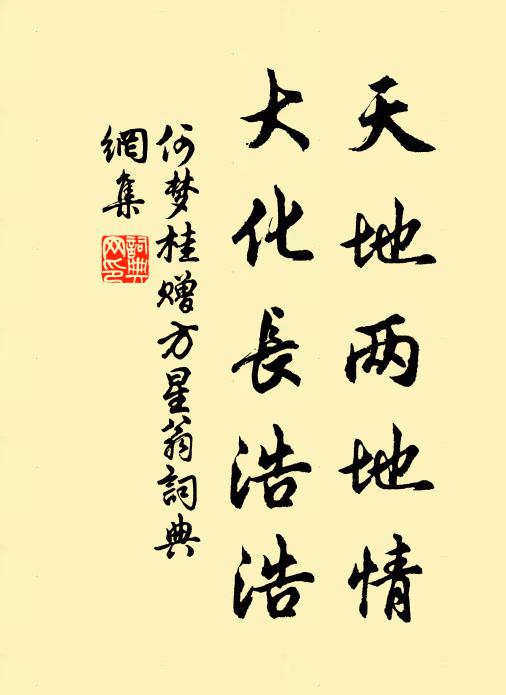 天地两地情
大化長浩浩
何梦桂赠方星翁詞典
網集
詞典
网印